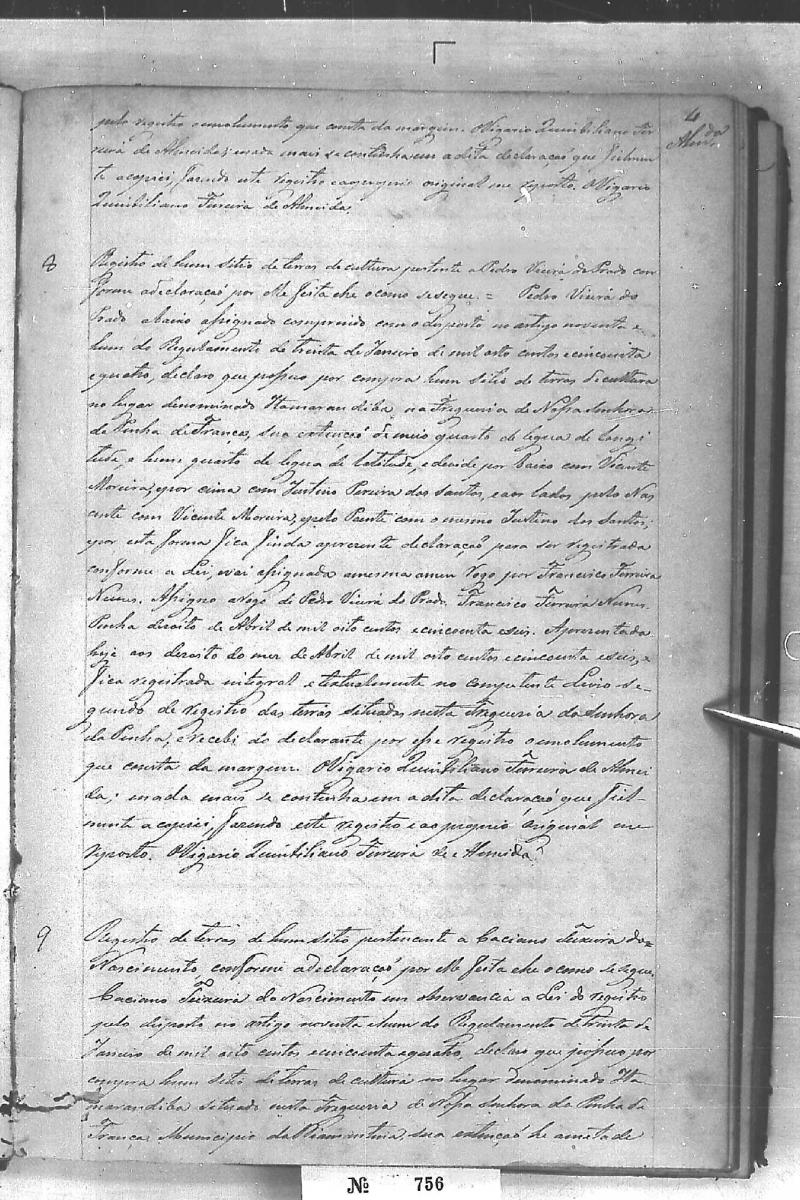 4
Almda
pelo registro o emolumento que consta da margem. O Vigario Quinbiliano Fer
reira de Almeida; e nada mais se continha em a dita declaração que fielmen
te a copiei, fazendo este registro e ao proprio original me reporto. O Vigario
Quinbiliano Ferreira de Almeida.
8
Registro de hum sitio de terras de cultura pertente a Pedro Vieira do Prado con
forme a declaração por elle feita che o como se segue. = Pedro Vieira do
Prado abaixo assignado comprindo com o disposto no artigo noventa e
hum do Regulamento de trinta de Janeiro de mil oito centos e cincoenta
e quatro, declaro que possuo por compra hum sitio de terras de cultura
no lugar denominado Itamarandiba, na Freguesia de Nossa Senhora
da Penha de França, sua extenção de meio quarto de legua de longi
tude, e hum quarto de legua de latitude, e devide por baixo com Vicente
Moreira, e por cima com Justino Pereira dos Santos, e aos lados pelo Nas
cente com Vicente Moreira, e pelo Poente com o mesmo Justino dos Santos;
e por esta forma fica finda a presente declaração para ser registrada
conforme a Lei, e vai assignada a mesma a meu rogo por Francisco Ferreira
Nunes. Assigno a rogo de Pedro Vieira do Prado. Francisco Ferreira Nunes.
Penha dezoito de Abril de mil oito centos e cincoenta e seis. Apresentada
hoje aos dezoito do mez de Abril de mil oito centos e cincoenta e seis, e
fica registrada integral e textualmente no competente Livro se-
gundo de registro das terras situadas nesta Freguesia da Senhora
da Penha, e recebi do declarante por esse registro o emolumento
que consta da margem. O Vigario Quinbiliano Ferreira de Almei
da; e nada mais se continha em a dita declaração que fiel-
mente a copiei, fazendo este registro e ao proprio original me
reporto. O Vigario Quinbiliano Ferreira de Almeida.
9
Registro de terras de hum sitio pertencente a Caciano Teixeira do=
Nascimento, conforme a declaração por elle feita che o como se segue.
Caciano Teixeira do Nascimento em observancia a Lei do registro
pelo disposto no artigo noventa e hum do Regulamento de trinta de
Janeiro de mil oito centos e cincoenta e quatro, declaro que possuo por
compra hum sitio de terras de cultura no lugar denominado Ita
marandiba situado nesta Freguesia de Nossa Senhora da Penha de
França Municipio da Diamantina, sua extenção he a meta de
Nº 756